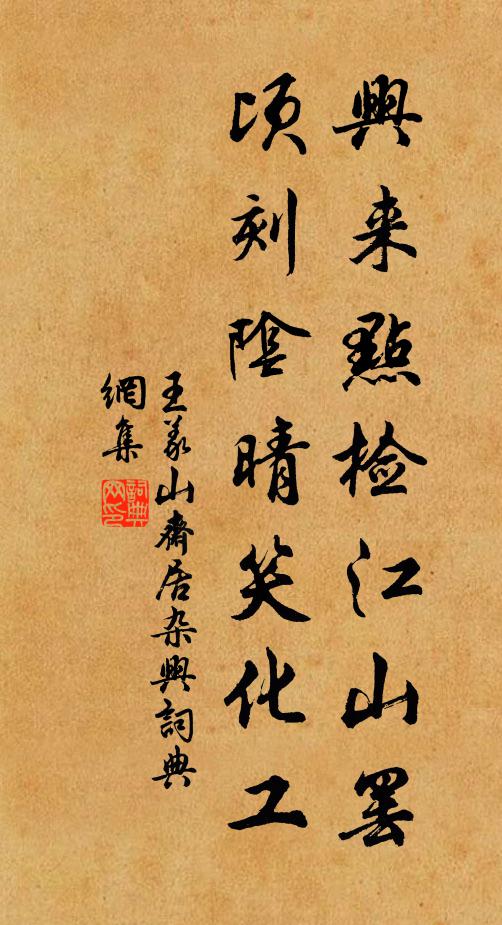 興来點檢江山罢
頃刻陰晴笑化工
王義山齋居杂興詞典
網集
詞典
网印